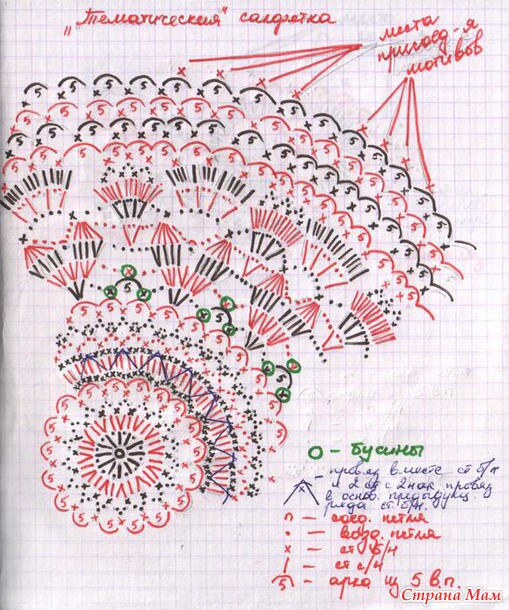 „Тематическая" салфетка
места
присоед-я
мотивов
О - бусины
- провяз вместе ст б/н
и 2 ст с 2 нак, провяз
в основ. предыдущ.
ряда ст. б/н.
∩ — соед. петля
• — возд. петля
x — ст б/н
| — ст с/н
5 — арка из 5 в.п.
Страна Мам